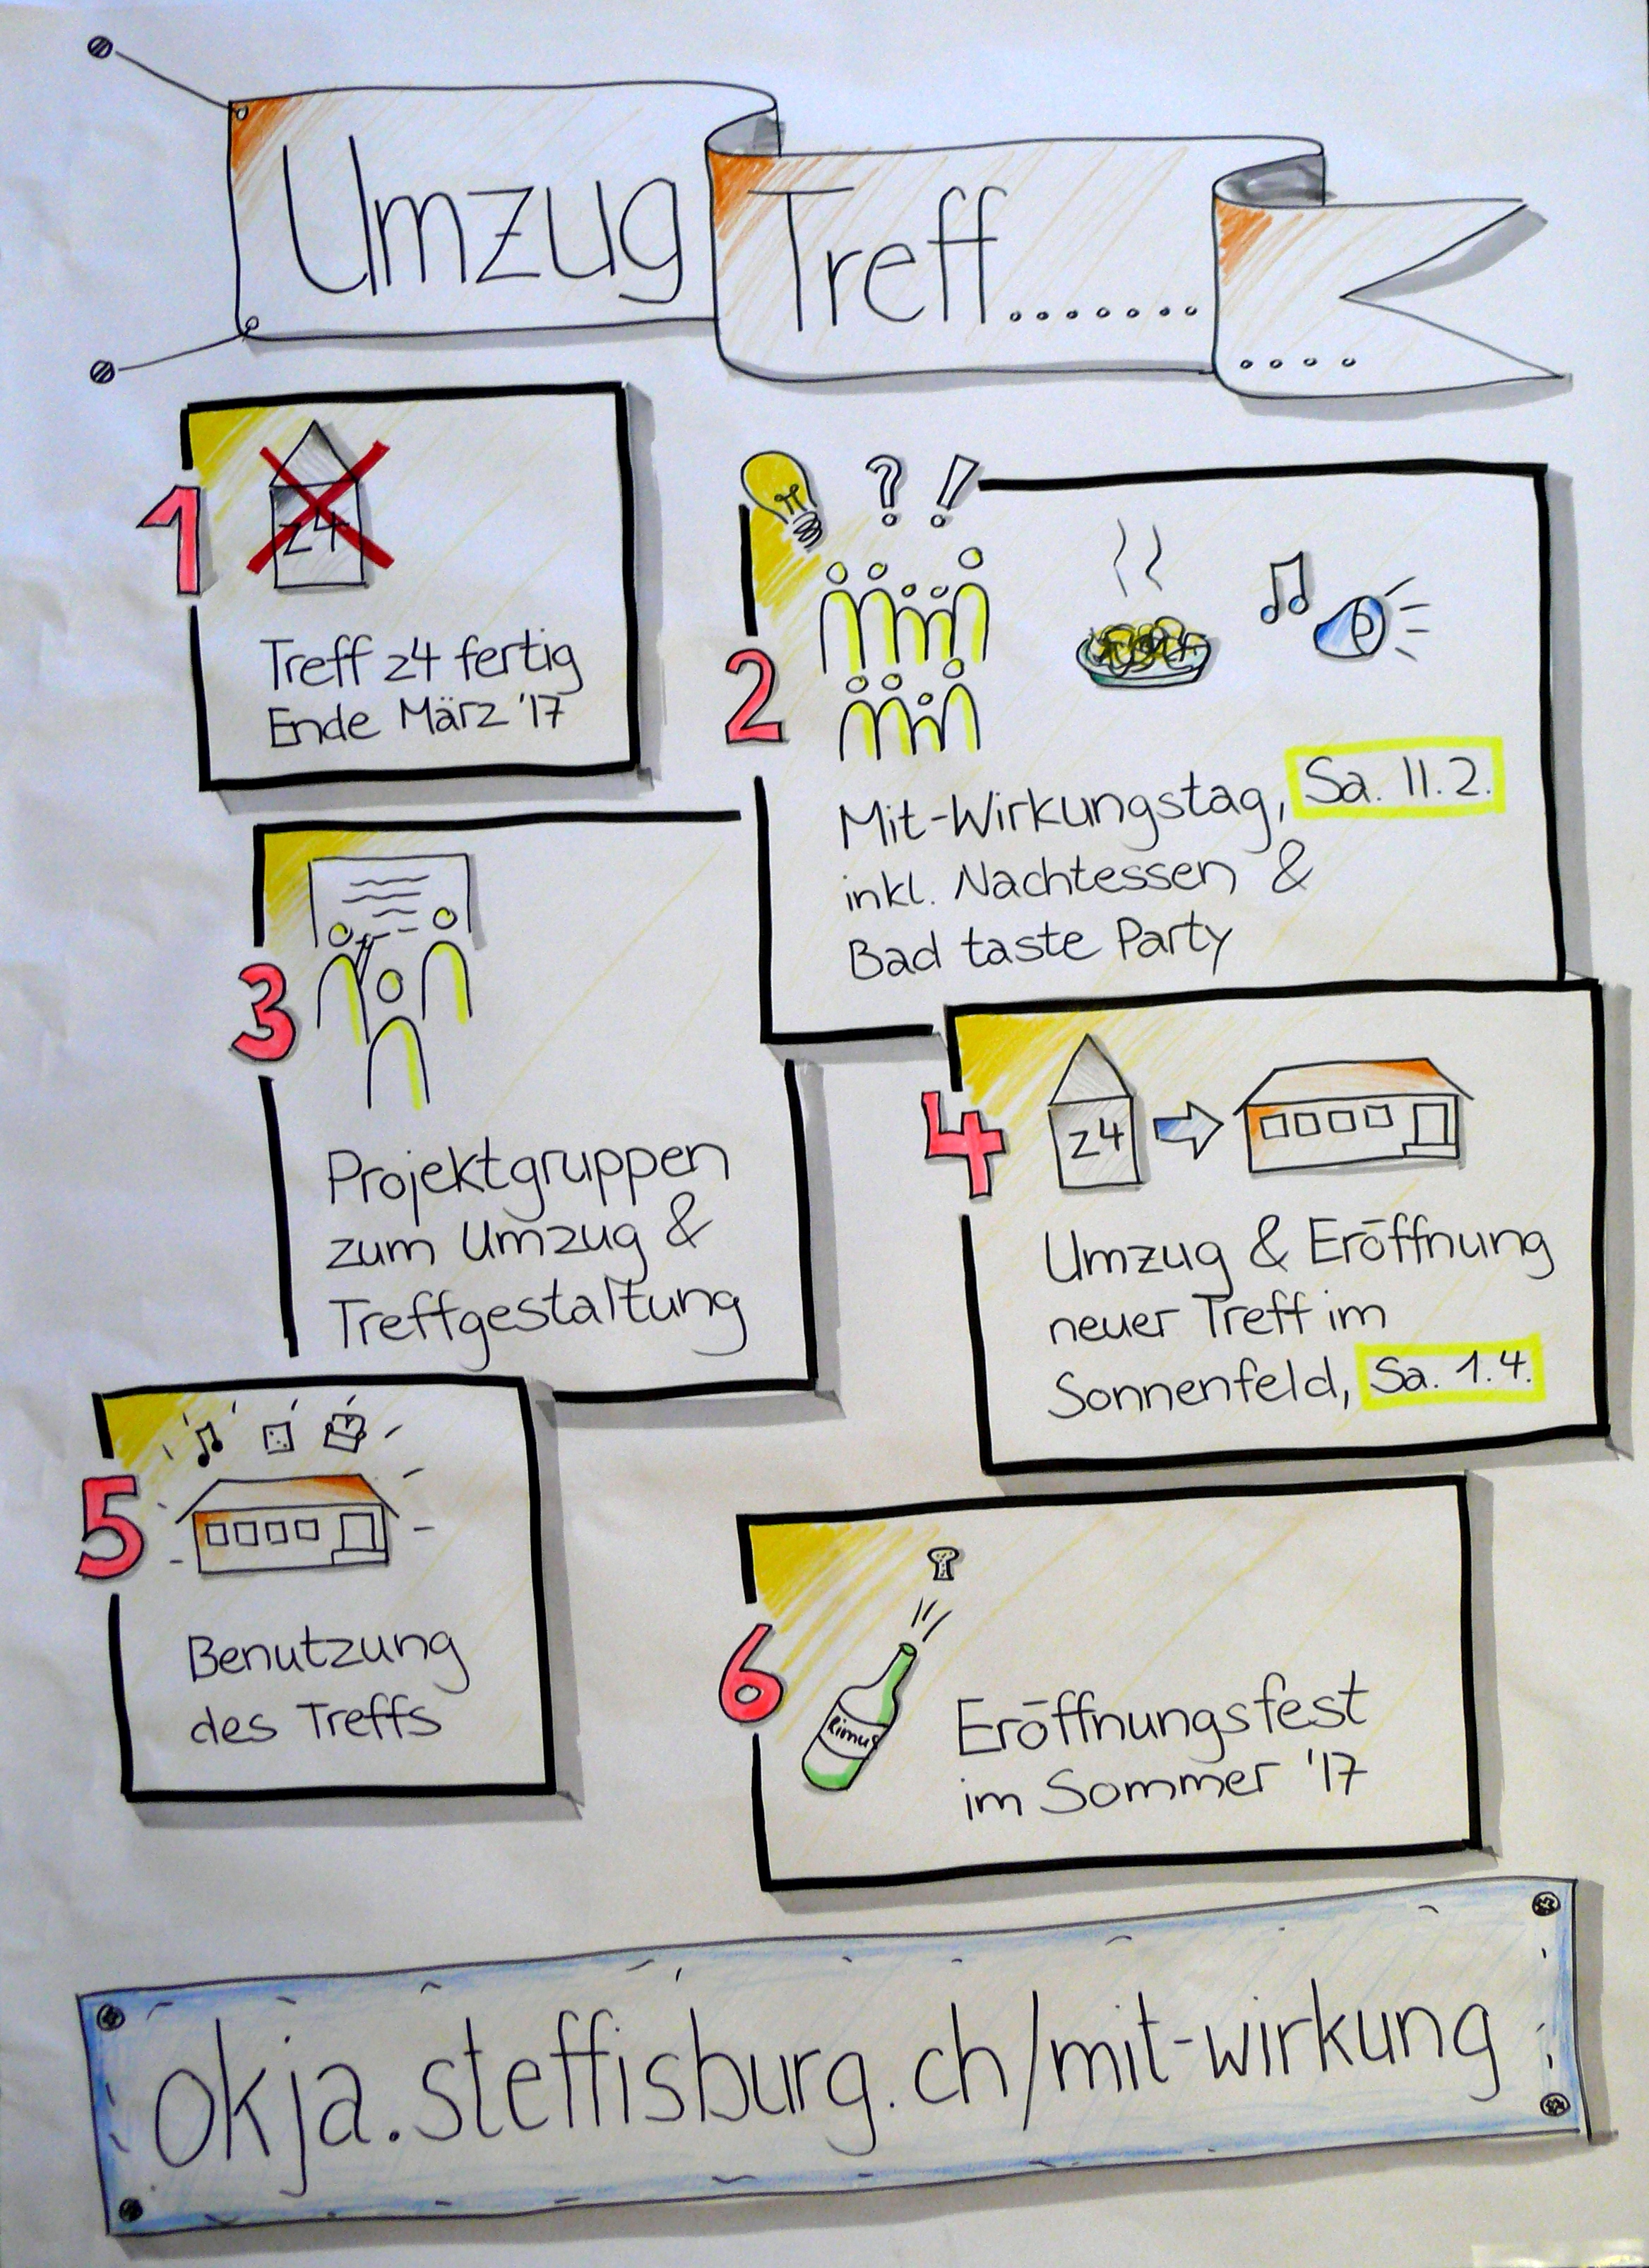 Umzug
Treff...........
1
z4
Treff z4 fertig
Ende März '17
? !
2
Mit-Wirkungstag, Sa. 11.2.
inkl. Nachtessen &
Bad taste Party
3
Projektgruppen
zum Umzug &
Treffgestaltung
4
z4
Umzug & Eröffnung
neuer Treff im
Sonnenfeld, Sa. 1.4.
5
Benutzung
des Treffs
6
Rimus
Eröffnungsfest
im Sommer '17
okja.steffisburg.ch/mit-wirkung